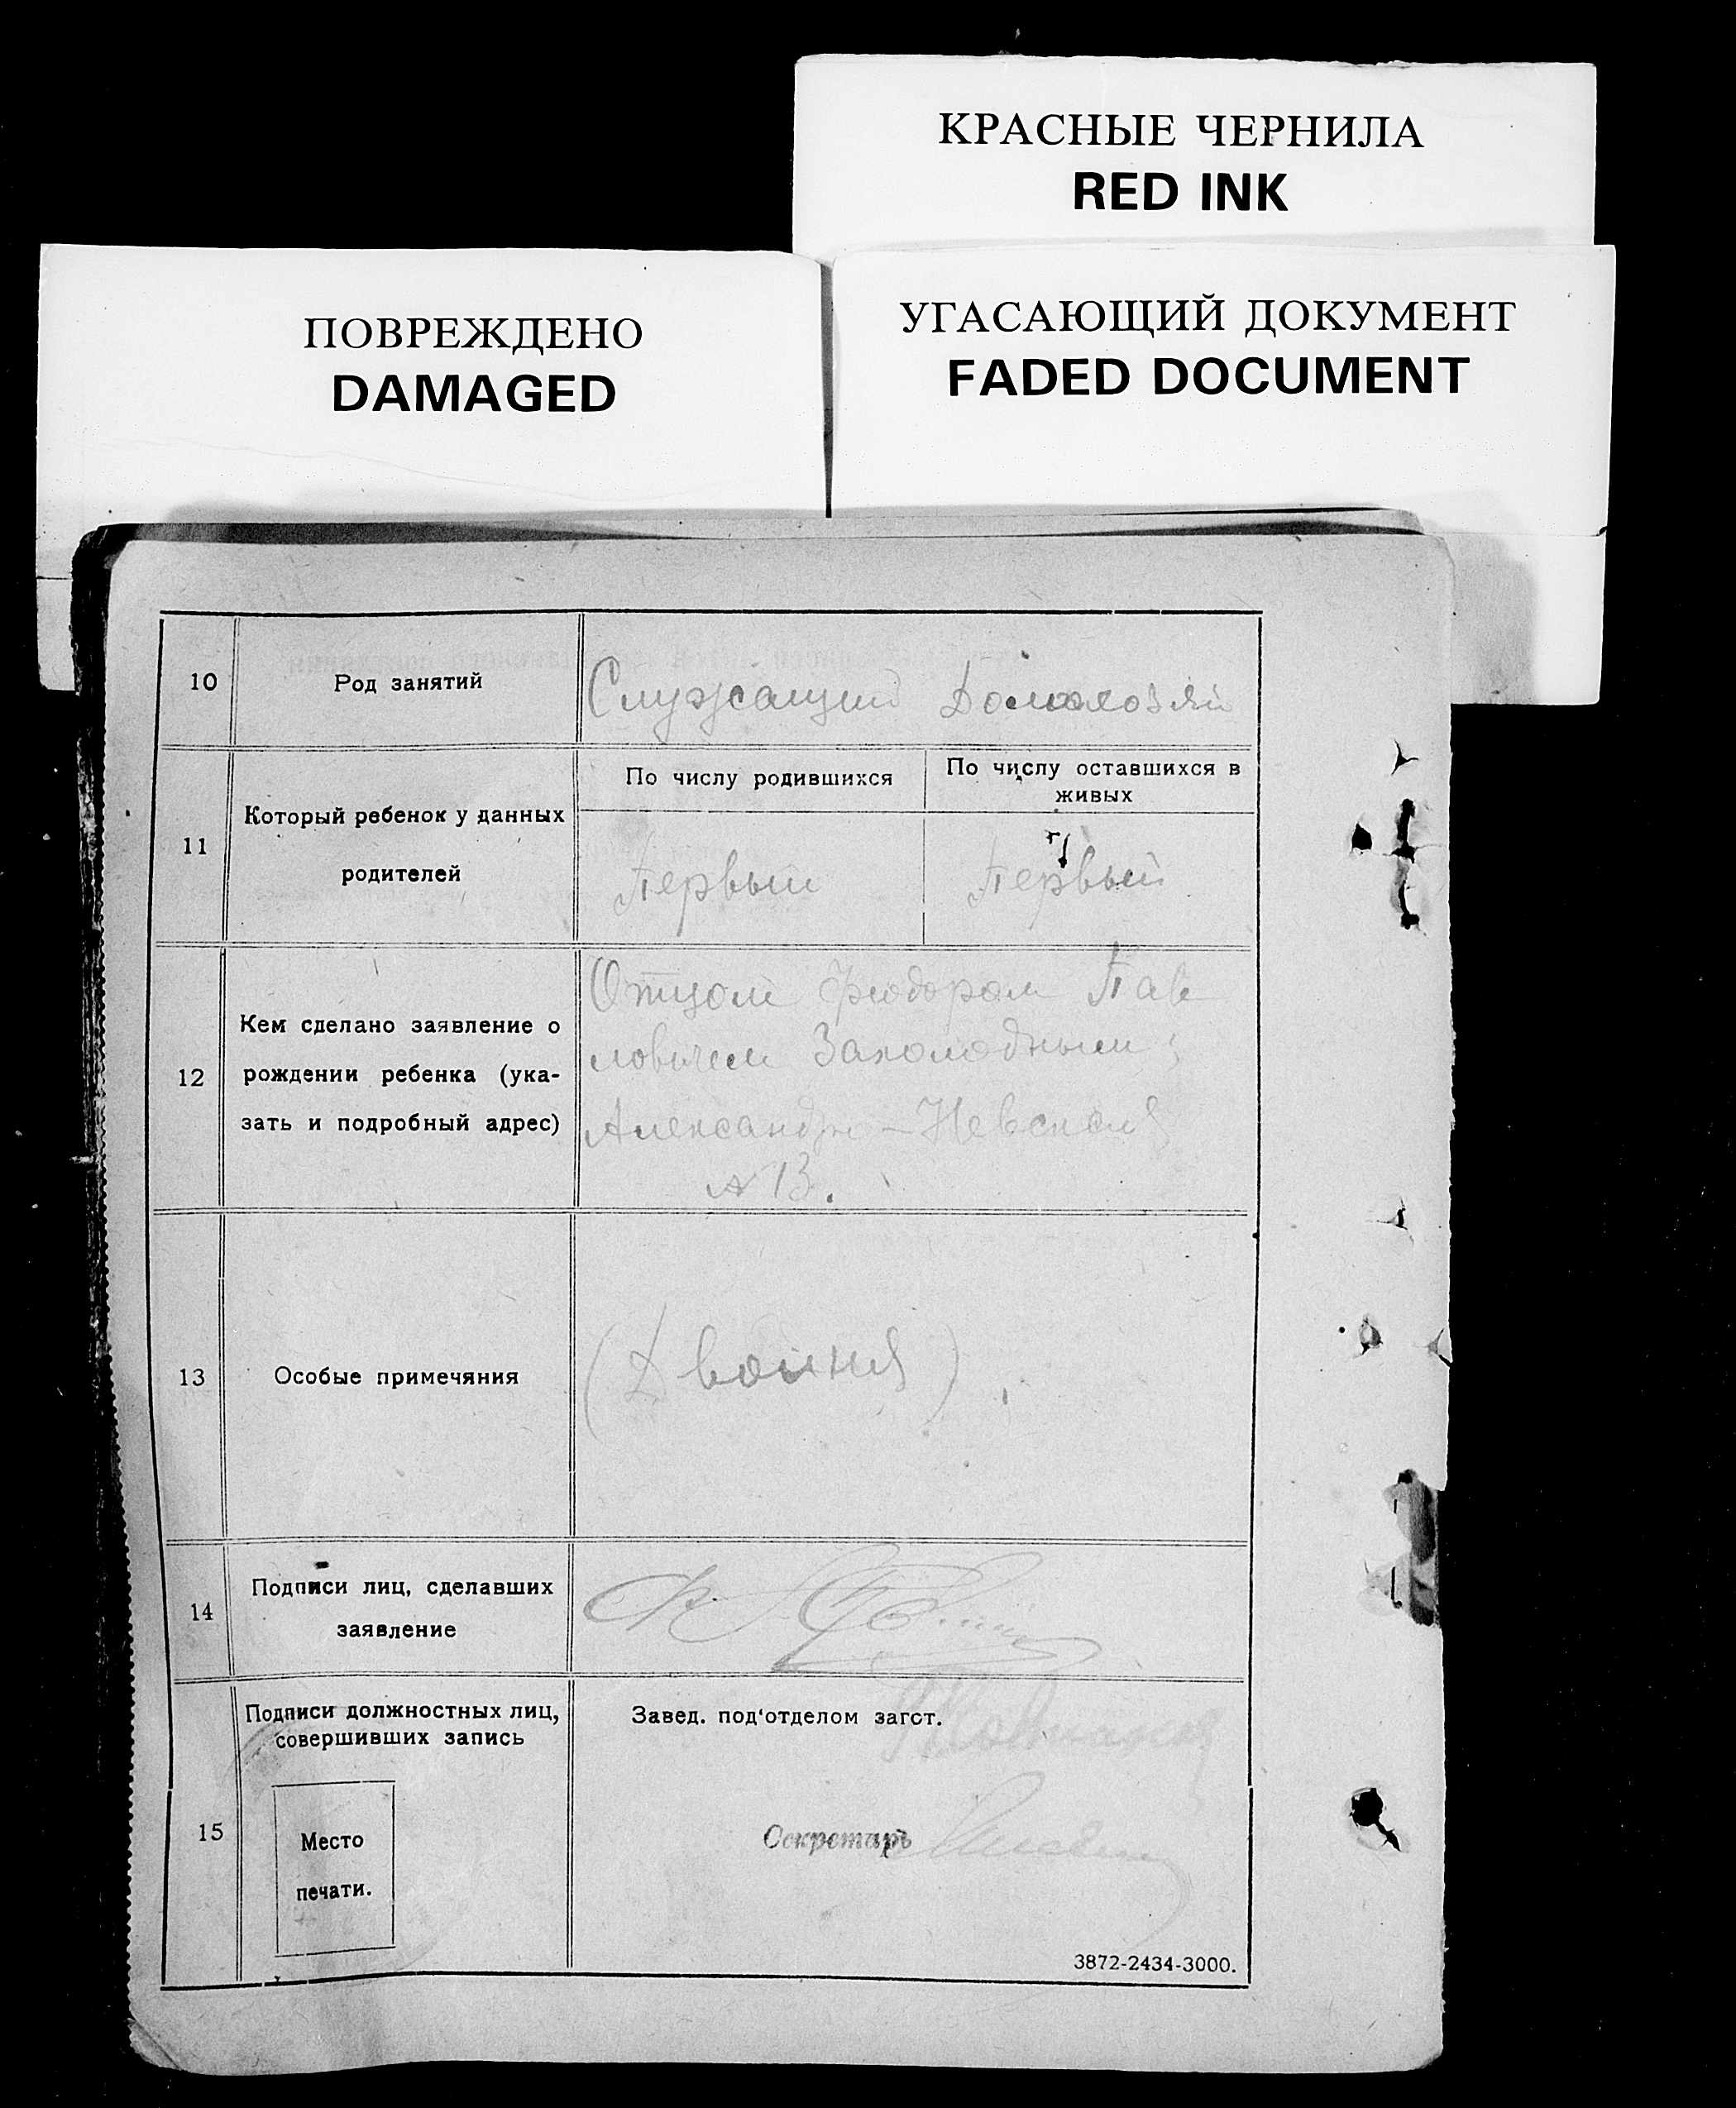 КРАСНЫЕ ЧЕРНИЛА
RED INK
ПОВРЕЖДЕНО
DAMAGED
УГАСАЮЩИЙ ДОКУМЕНТ
FADED DOCUMENT
10
Род занятий
Служащий
11
Который ребенок у данных
родителей
По числу родившихся
По числу оставшихся в
живых
Первый
Первый
12
Кем сделано заявление о
рождении ребенка (ука-
зать и подробный адрес)
Отцом Феодором Пав
ловичем Захолодным
Александро-Невская
№ 13.
13
Особые примечяния
(Двойня)
14
Подписи лиц, сделавших
заявление
15
Подписи должностных лиц,
совершивших запись
Место
печати.
Завед. под‘отделом загст.
Секретарь
3872-2434-3000.